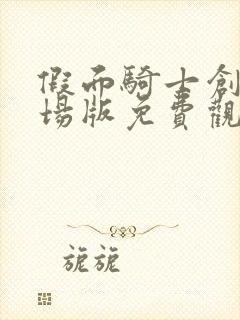 假面騎士創
場版免費觀
旎旎